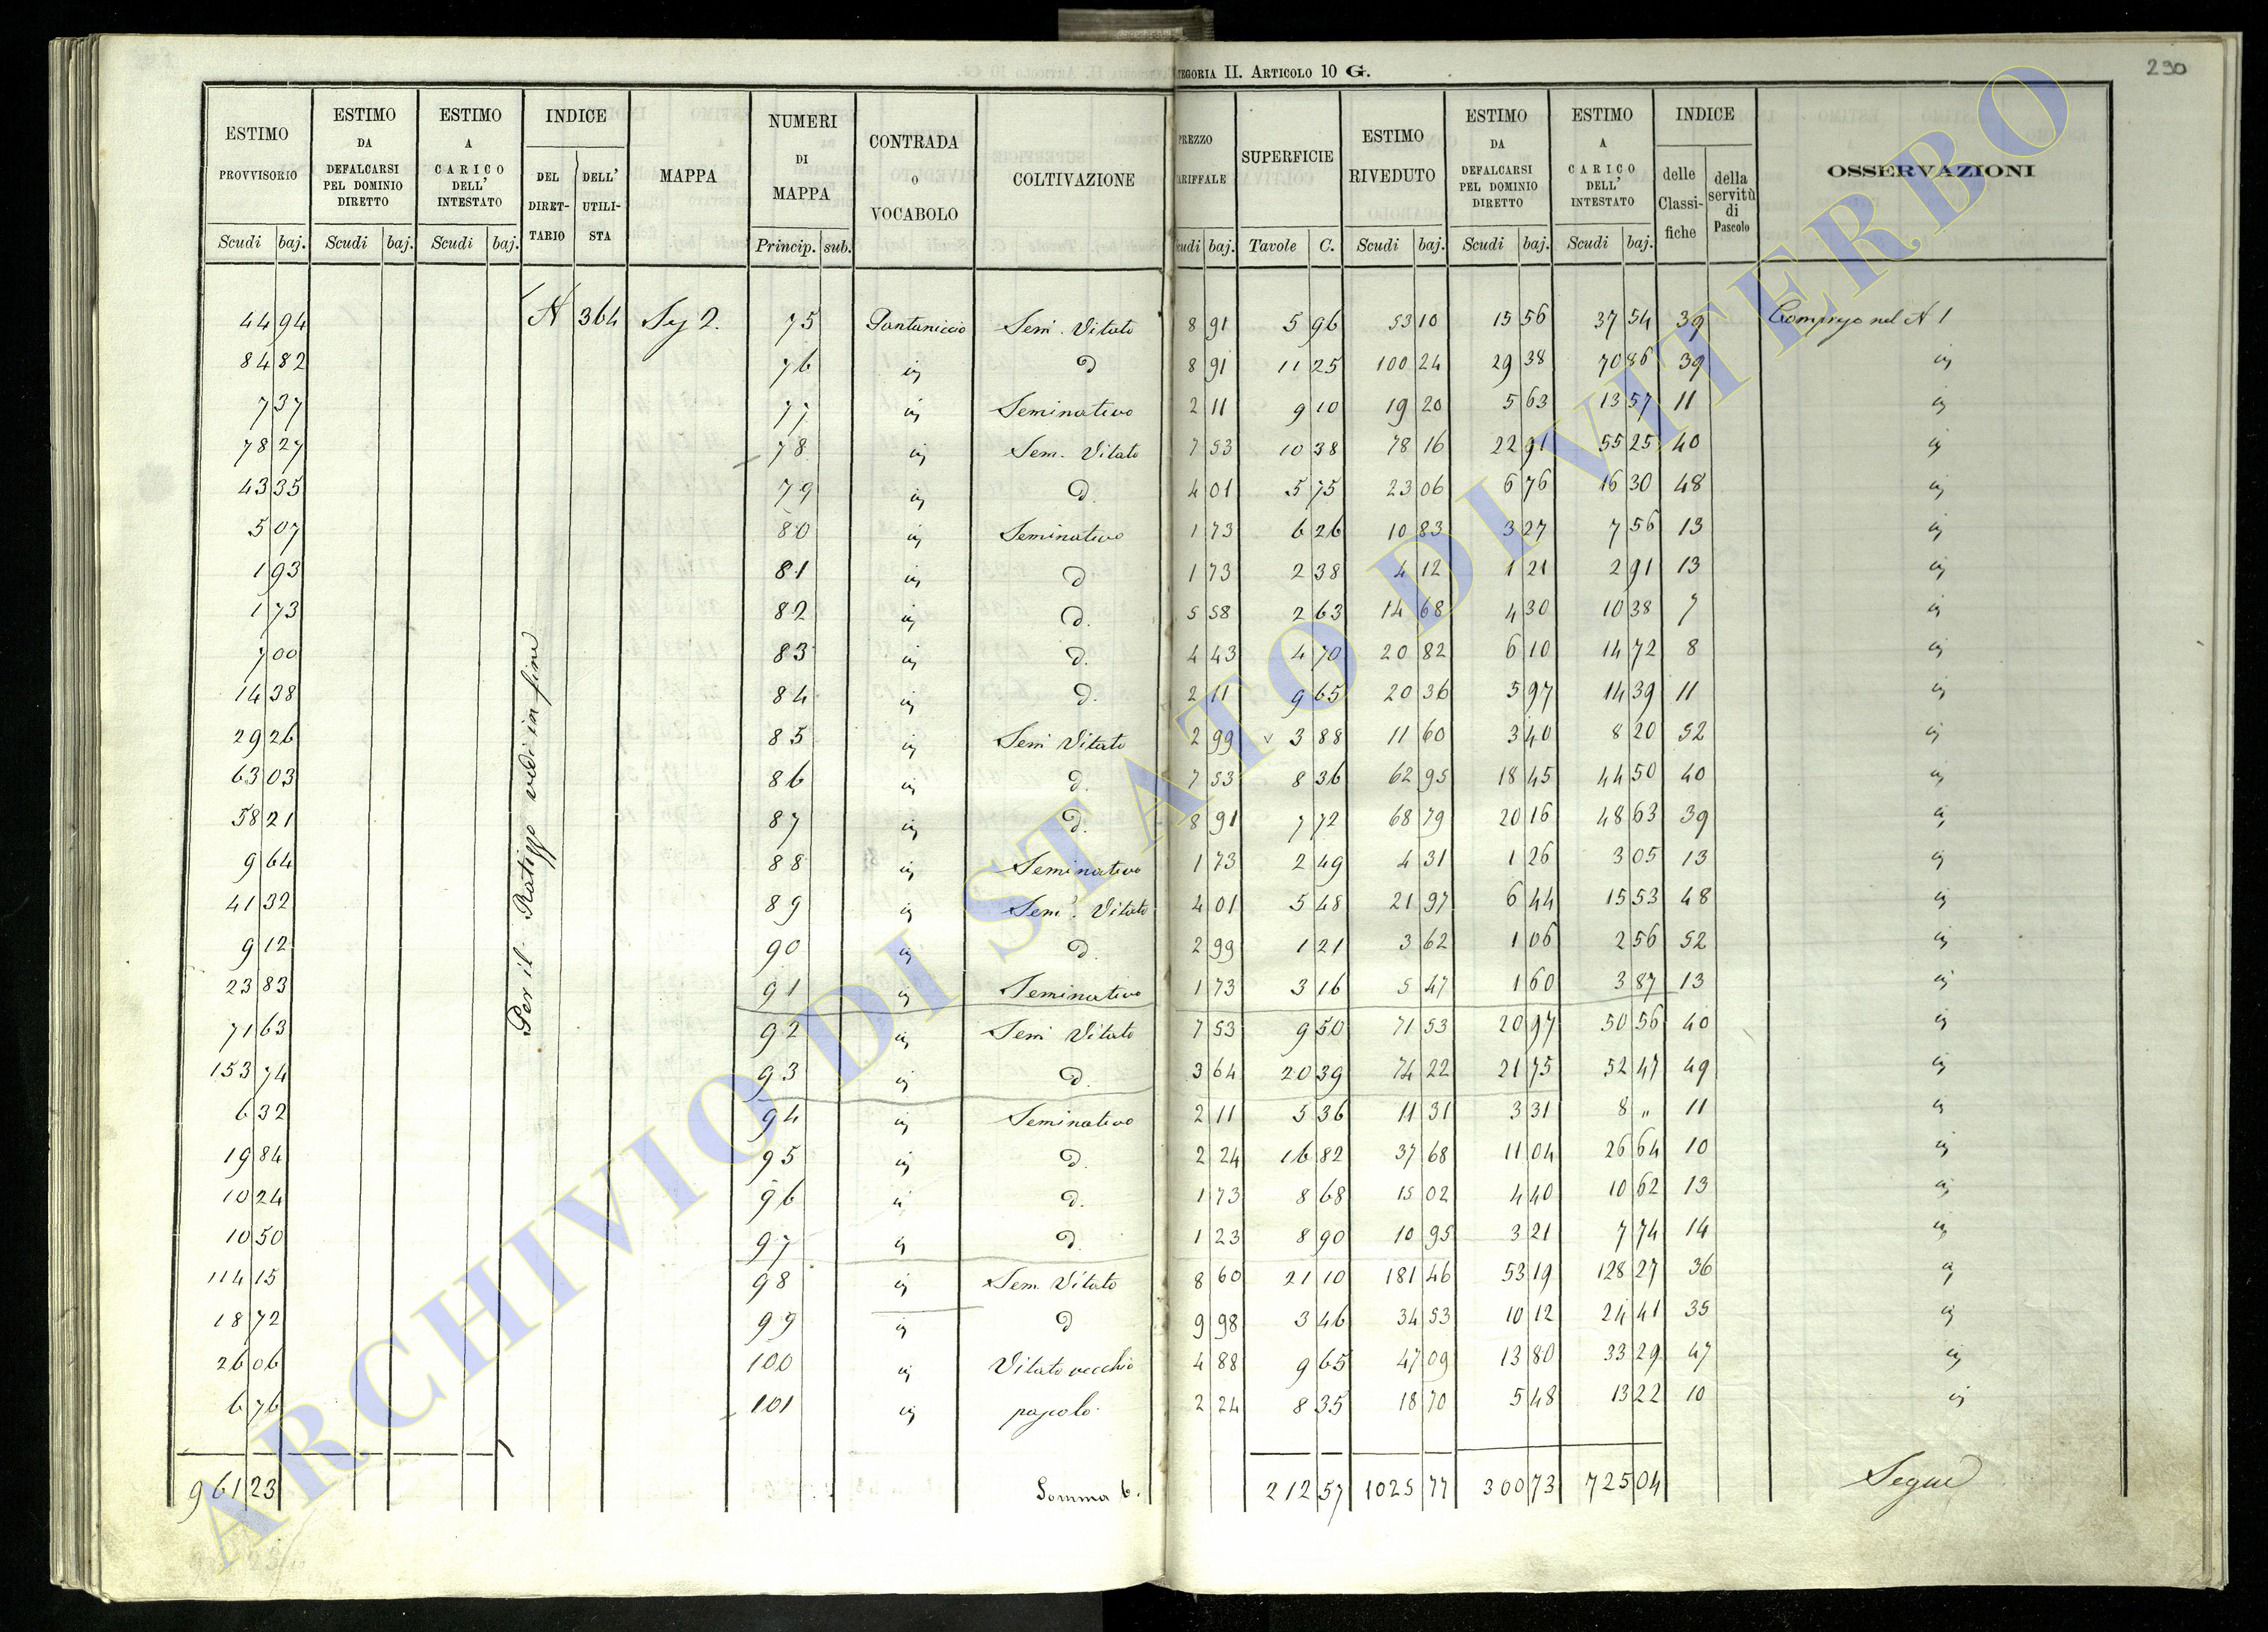 TEGORIA II. ARTICOLO 10 G.
230
ESTIMO PROVVISORIO | ESTIMO DA DEFALCARSI PEL DOMINIO DIRETTO | ESTIMO A CARICO DELL' INTESTATO | INDICE | MAPPA | NUMERI DI MAPPA | CONTRADA o VOCABOLO | COLTIVAZIONE | PREZZO ARIFFALE | SUPERFICIE | ESTIMO RIVEDUTO | ESTIMO DA DEFALCARSI PEL DOMINIO DIRETTO | ESTIMO A CARICO DELL' INTESTATO | INDICE | OSSERVAZIONI
DEL DIRETTARIO | DELL' UTILISTA | delle Classifiche | della servitù di Pascolo
Scudi baj. | Scudi baj. | Scudi baj. | Princip. sub. | cudi baj. | Tavole C. | Scudi baj. | Scudi baj. | Scudi baj.
44 94 | A | 364 | Sez 2. | 75 | Pantaniccio | Sem. Vitato | 8 91 | 5 96 | 53 10 | 15 56 | 37 54 | 39 | Compreso nel A 1
84 82 | 76 | id | d | 8 91 | 11 25 | 100 24 | 29 38 | 70 86 | 39 | id
7 37 | 77 | id | Seminativo | 2 11 | 9 10 | 19 20 | 5 63 | 13 57 | 11 | id
78 27 | 78 | id | Sem. Vitato | 7 53 | 10 38 | 78 16 | 22 91 | 55 25 | 40 | id
43 35 | 79 | id | d. | 4 01 | 5 75 | 23 06 | 6 76 | 16 30 | 48 | id
5 07 | 80 | id | Seminativo | 1 73 | 6 26 | 10 83 | 3 27 | 7 56 | 13 | id
1 93 | 81 | id | d | 1 73 | 2 38 | 4 12 | 1 21 | 2 91 | 13 | id
1 73 | 82 | id | d. | 5 58 | 2 63 | 14 68 | 4 30 | 10 38 | 7 | id
7 00 | 83 | id | d. | 4 43 | 4 70 | 20 82 | 6 10 | 14 72 | 8 | id
14 38 | 84 | id | d. | 2 11 | 9 65 | 20 36 | 5 97 | 14 39 | 11 | id
29 26 | 85 | id | Sem Vitato | 2 99 | 3 88 | 11 60 | 3 40 | 8 20 | 52 | id
63 03 | 86 | id | d. | 7 53 | 8 36 | 62 95 | 18 45 | 44 50 | 40 | id
58 21 | 87 | id | d. | 8 91 | 7 72 | 68 79 | 20 16 | 48 63 | 39 | id
9 64 | 88 | id | Seminativo | 1 73 | 2 49 | 4 31 | 1 26 | 3 05 | 13 | id
41 32 | 89 | id | Sem. Vitato | 4 01 | 5 48 | 21 97 | 6 44 | 15 53 | 48 | id
9 12 | 90 | id | d. | 2 99 | 1 21 | 3 62 | 1 06 | 2 56 | 52 | id
23 83 | 91 | id | Seminativo | 1 73 | 3 16 | 5 47 | 1 60 | 3 87 | 13 | id
71 63 | 92 | id | Sem Vitato | 7 53 | 9 50 | 71 53 | 20 97 | 50 56 | 40 | id
153 74 | 93 | id | d. | 3 64 | 20 39 | 74 22 | 21 75 | 52 47 | 49 | id
6 32 | 94 | id | Seminativo | 2 11 | 5 36 | 11 31 | 3 31 | 8 " | 11 | id
19 84 | 95 | id | d. | 2 24 | 16 82 | 37 68 | 11 04 | 26 64 | 10 | id
10 24 | 96 | id | d. | 1 73 | 8 68 | 15 02 | 4 40 | 10 62 | 13 | id
10 50 | 97 | id | d. | 1 23 | 8 90 | 10 95 | 3 21 | 7 74 | 14 | id
114 15 | 98 | id | Sem. Vitato | 8 60 | 21 10 | 181 46 | 53 19 | 128 27 | 36 | id
18 72 | 99 | id | d | 9 98 | 3 46 | 34 53 | 10 12 | 24 41 | 35 | id
26 06 | 100 | id | Vitato vecchio | 4 88 | 9 65 | 47 09 | 13 80 | 33 29 | 47 | id
6 76 | 101 | id | pascolo | 2 24 | 8 35 | 18 70 | 5 48 | 13 22 | 10 | id
961 23 | Somma 6. | 212 57 | 1025 77 | 300 73 | 725 04 | Segue
Per il Ratizzo vedi in fine
ARCHIVIO DI STATO DI VITERBO